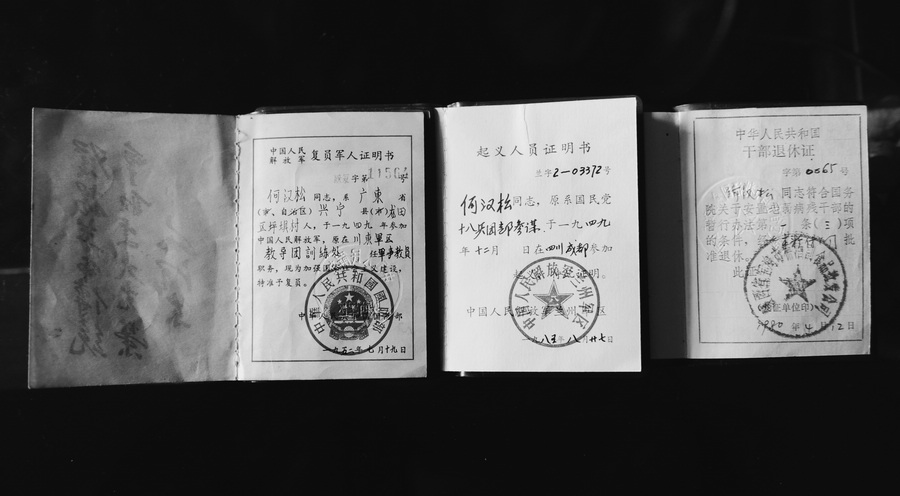 中国人民
解放军 复员军人证明书
字第
何汉松同志,系 广东 省
(市、自治区) 兴宁 县(市)
区坪塘村人,于一九四九年参加
中国人民解放军,原在川东军区
教导团训练处 任军事教员
职务,现为加强国 义建设,
特准予复员。
中华人民共和国国防部
一九五二年七月十九日
起义人员证明书
兰字2-03372号
何汉松同志,原系国民党
十八兵团部参谋,于一九四九
年十二月 日在四川成都参加
证明。
中国人民解放军兰州军区
中国人民解放军兰州军区
一九八五年八月廿七日
中华人民共和国
干部退休证
字第0065号
何汉松同志符合国务
院关于安置老弱病残干部的
暂行办法第一条(三)项
的条件,
准退休。
此
证单位印)
1980年4月12日